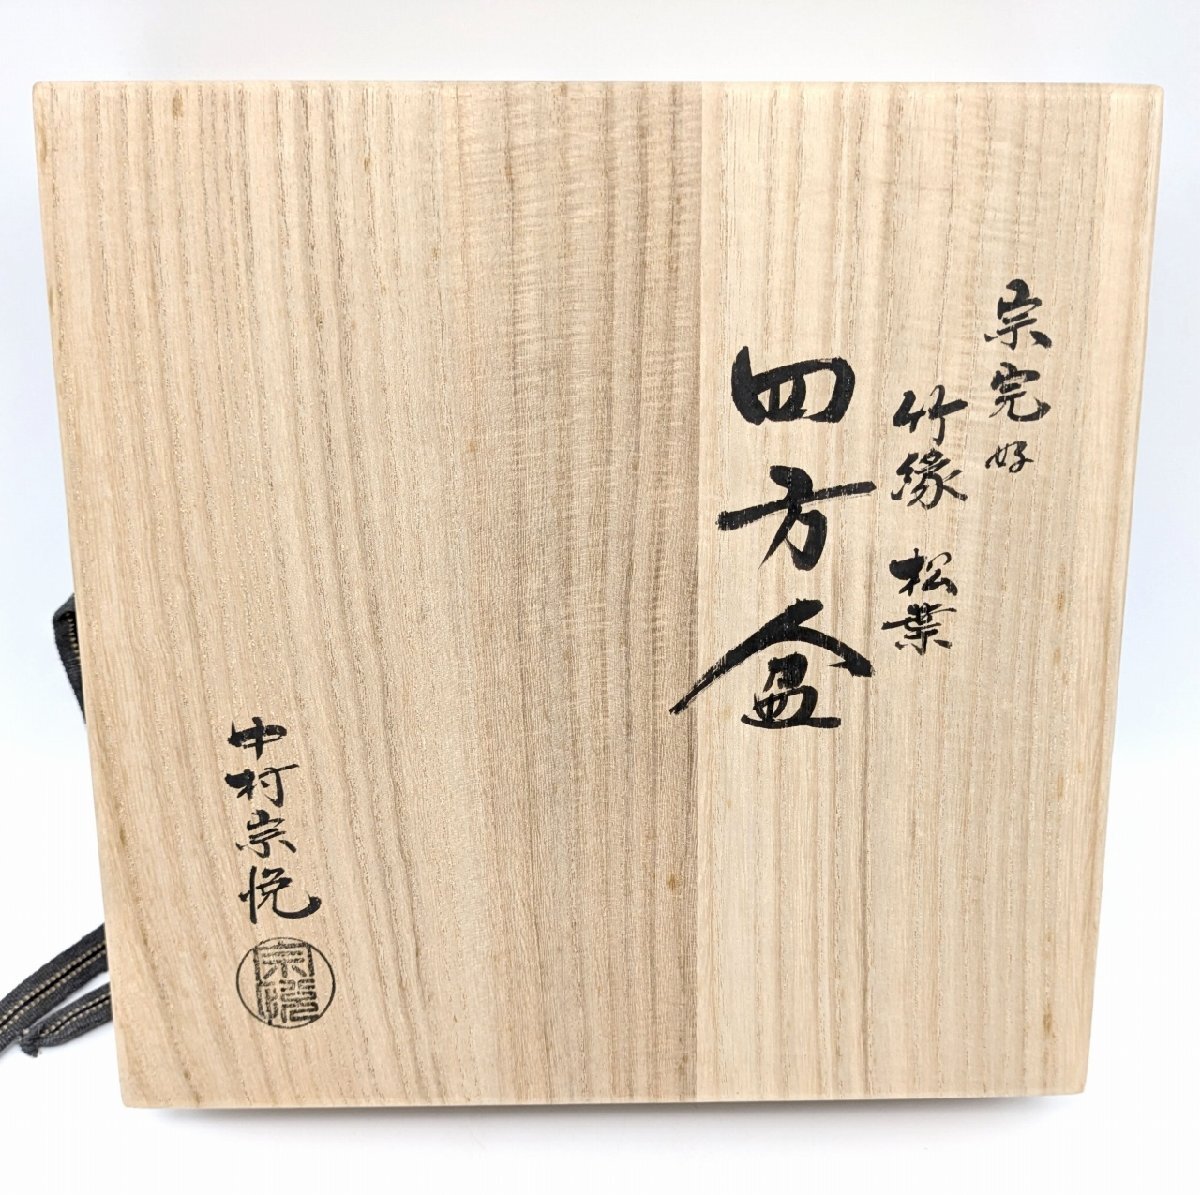 宗完好
竹縁 松葉
四方盆
中村宗悦
宗悦